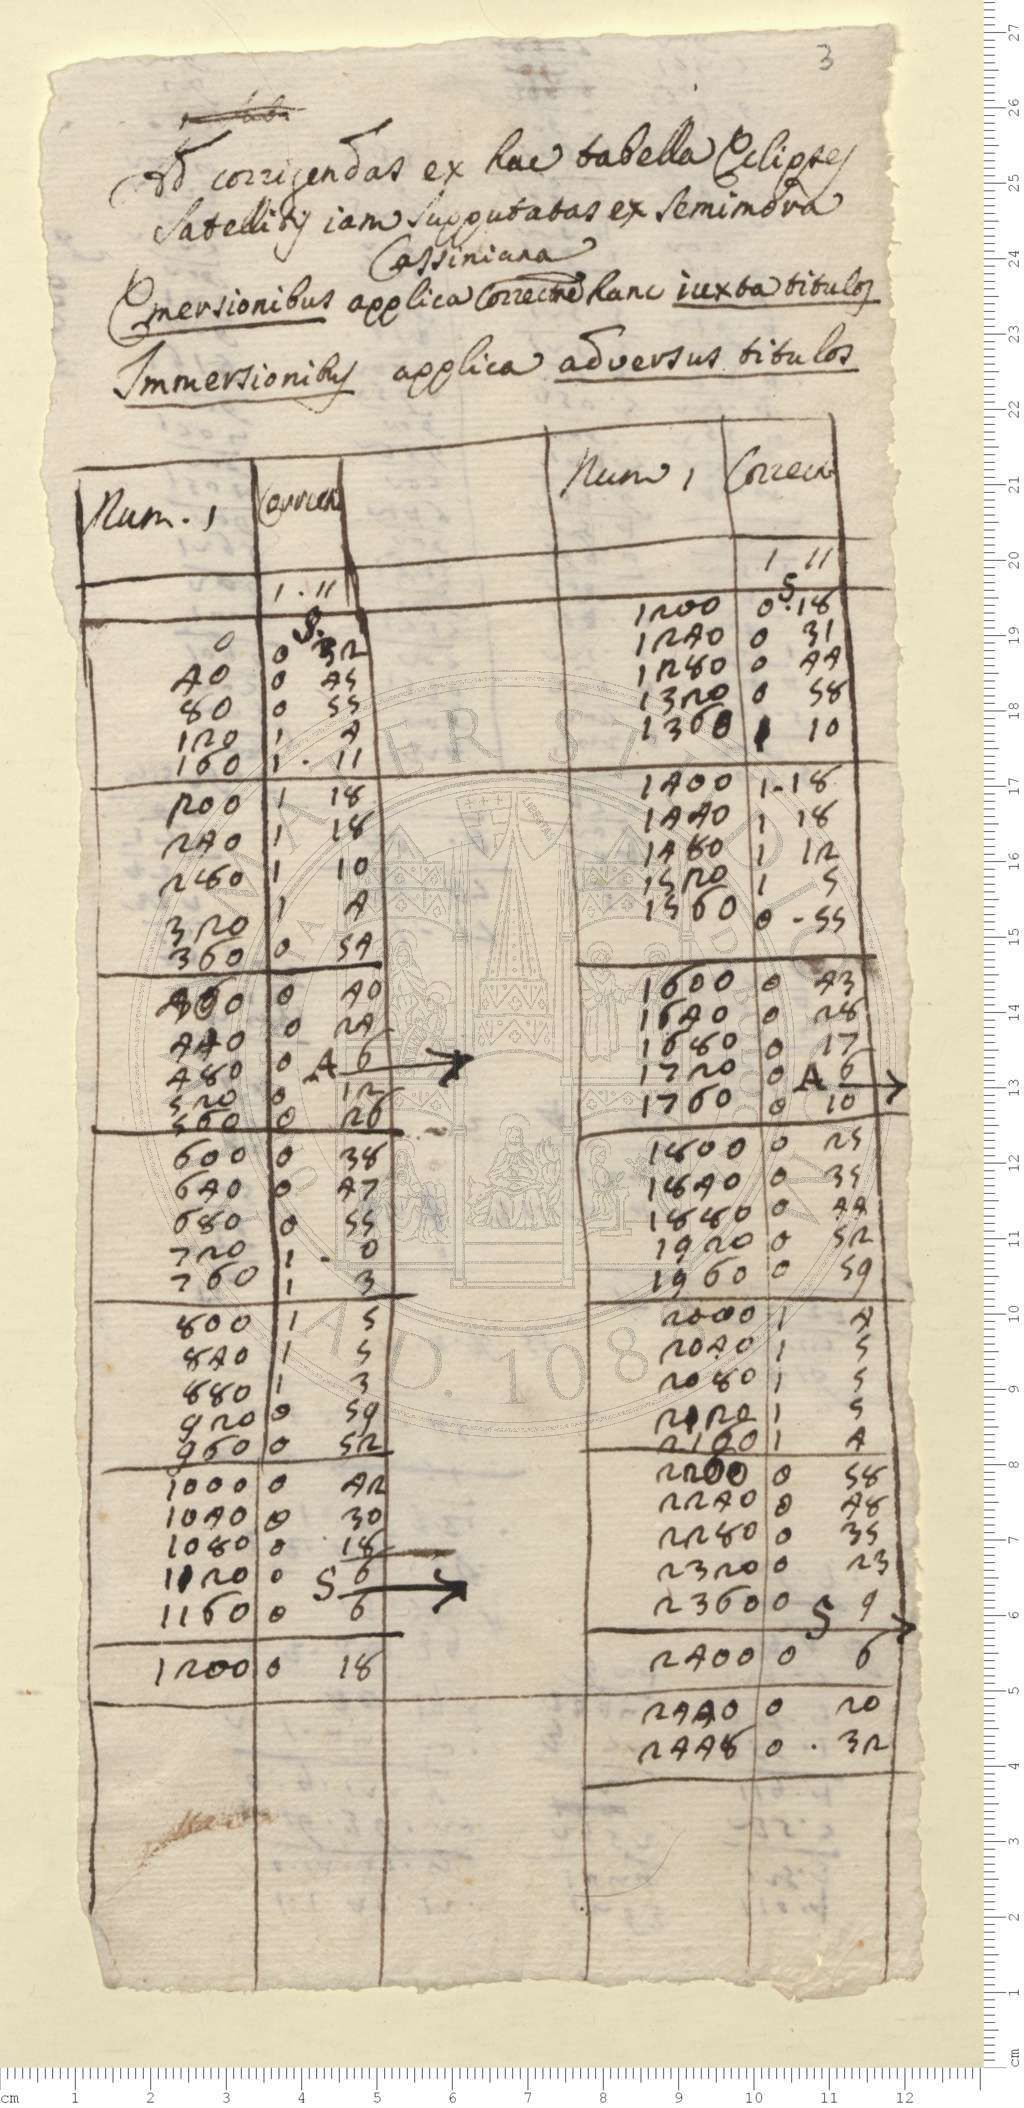 3
Ad corrigendas ex hac tabella Eclipses
Satellitis iam supputatas ex semimora
Cassiniana
Emersionibus applica correctne hanc iuxta titulos
Immersionibus applica adversus titulos
Num. 1 Correct
' . ''
S.
0 0 32
40 0 45
80 0 55
120 1 4
160 1 . 11
200 1 18
240 1 18
280 1 10
320 1 4
360 0 54
400 0 40
440 0 24
480 0 A 6
520 0 12
560 0 26
600 0 38
640 0 47
680 0 55
720 1 - 0
760 1 3
800 1 5
840 1 5
880 1 3
920 0 59
960 0 52
1000 0 42
1040 0 30
1080 0 18
1120 0 S 6
1160 0 6
1200 0 18
Num 1 Correctn
' ''
S
1200 0 . 18
1240 0 31
1280 0 44
1320 0 58
1360 1 10
1400 1 - 18
1440 1 18
1480 1 12
1520 1 5
1560 0 - 55
1600 0 43
1640 0 28
1680 0 17
1720 0 A 6
1760 0 10
1800 0 25
1840 0 35
1880 0 44
1920 0 52
1960 0 59
2000 1 4
2040 1 5
2080 1 5
2120 1 5
2160 1 4
2200 0 58
2240 0 48
2280 0 35
2320 0 23
2360 0 S 9
2400 0 6
2440 0 20
2448 0 . 32
A.D. 1088
LIBERTAS
cm 1 2 3 4 5 6 7 8 9 10 11 12
27
26
25
24
23
22
21
20
19
18
17
16
15
14
13
12
11
10
9
8
7
6
5
4
3
2
1
cm